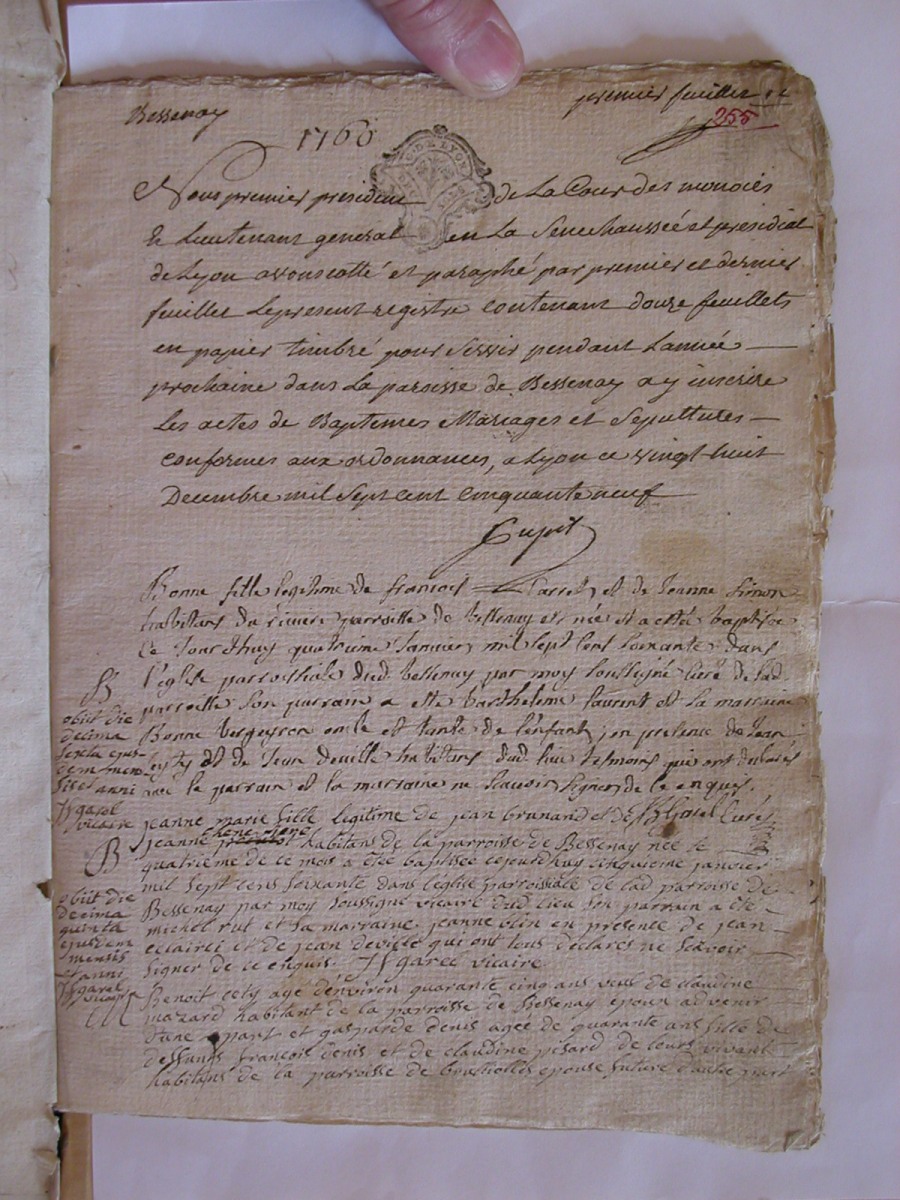 Bessenay
premier feuillet
255
1760
G. DE LYON
Nous premier president de La Cour des monoies
& Lieutenant general en La Senechaussée et presidial
de Lyon avons cotté et paraphé par premier et dernier
feuillet Le present registre contenant douze feuillets
en papier timbré pour Servir pendant L'année
prochaine dans La paroisse de Bessenay a y inscrire
Les actes de Baptemes Mariages et Sepultures
conformes aux ordonnances, a Lyon ce vingt huit
Decembre mil Sept cent cinquante neuf
Pupil
Bonne fille legitime de francois et de Jeanne Simon
habitans du riviere parroisse de bessenay est née et a etté baptisée
ce Jourdhuy quatrieme Janvier mil sept cent soixante dans
l'eglise parroissiale dud. bessenay par moy soussigné curé de lad.
parroisse son parrain a etté barthelemi laurent et la marraine
Bonne bergeyron oncle et tante de l'enfant, en presence de Jean
et de Jean deville habitans dud. lieu temoins qui ont
le parrain et la marraine ne scavoir signer de ce enquis.
curé
B
obiit die
decima
sexta ejus
dem men
sis et anni
JJ garel
vicaire
jeanne marie fille legitime de jean brunand et de
jeanne chene habitans de la parroisse de Bessenay née le
quatrieme de ce mois a été baptisée cejourdhuy cinquieme janvier
mil sept cens soixante dans l'église parroissiale de lad parroisse de
Bessenay par moy soussigné vicaire dud. lieu son parrain a eté
michel rut et sa marraine jeanne blin en presence de jean
eclairci et de jean deville qui ont tous declarés ne scavoir
signer de ce enquis. JJ garel vicaire
B
obiit die
decima
quinta
ejusdem
mensis
et anni
JJ garel
vicaire
M
Benoit agé d'environ quarante cinq ans veuf de claudine
mazard habitant de la parroisse de Bessenay epoux advenir
d'une part et gasparde denis agée de quarante ans fille de
deffunts francois denis et de claudine pisard de leurs vivant
habitans de la parroisse de epouse future d'autre part